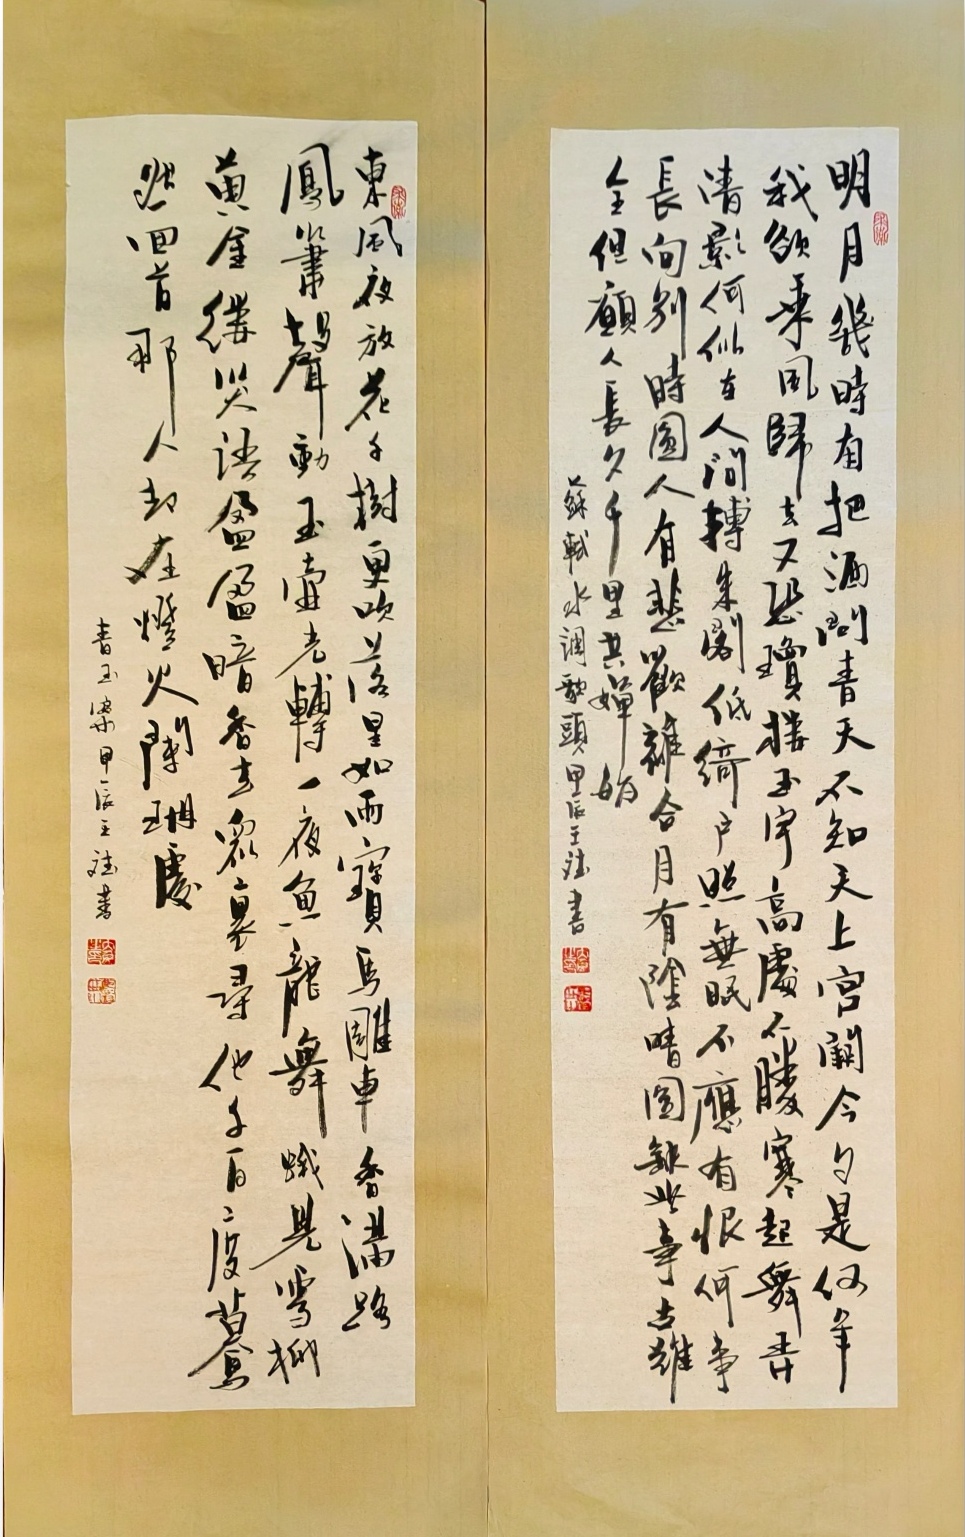 明月幾時有把酒問青天不知天上宮闕今夕是何年
我欲乘風歸去又恐瓊樓玉宇高處不勝寒起舞弄
清影何似在人間轉朱閣低綺戶照無眠不應有恨何事
長向別時圓人有悲歡離合月有陰晴圓缺此事古難
全但願人長久千里共嬋娟
蘇軾水調歌頭甲辰王書
東風夜放花千樹更吹落星如雨寶馬雕車香滿路
鳳簫聲動玉壺光轉一夜魚龍舞蛾兒雪柳
黃金縷笑語盈盈暗香去眾裏尋他千百度驀
然回首那人却在燈火闌珊處
青玉案甲辰王書